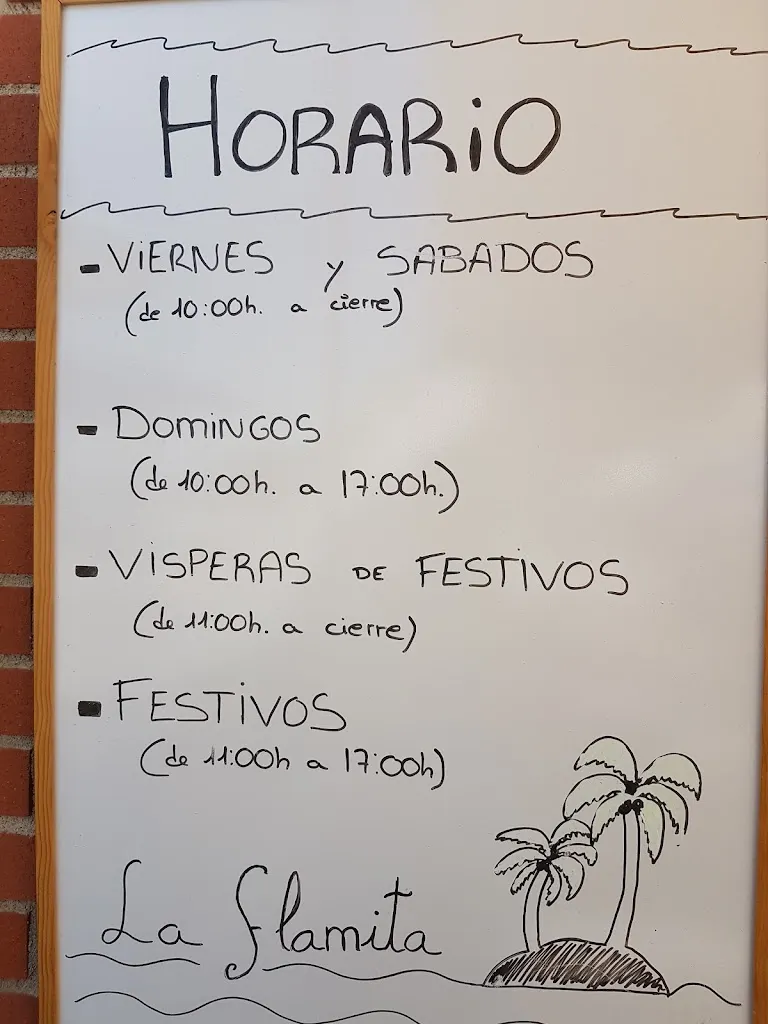 HORARiO
- ViERNES y SABADOS
(de 10:00h. a cierre)
- DOMiNGOS
(de 10:00h. a 17:00h.)
- ViSPERAS DE FESTiVOS
(de 11:00h. a cierre)
- FESTiVOS
(de 11:00h a 17:00h)
La flamita